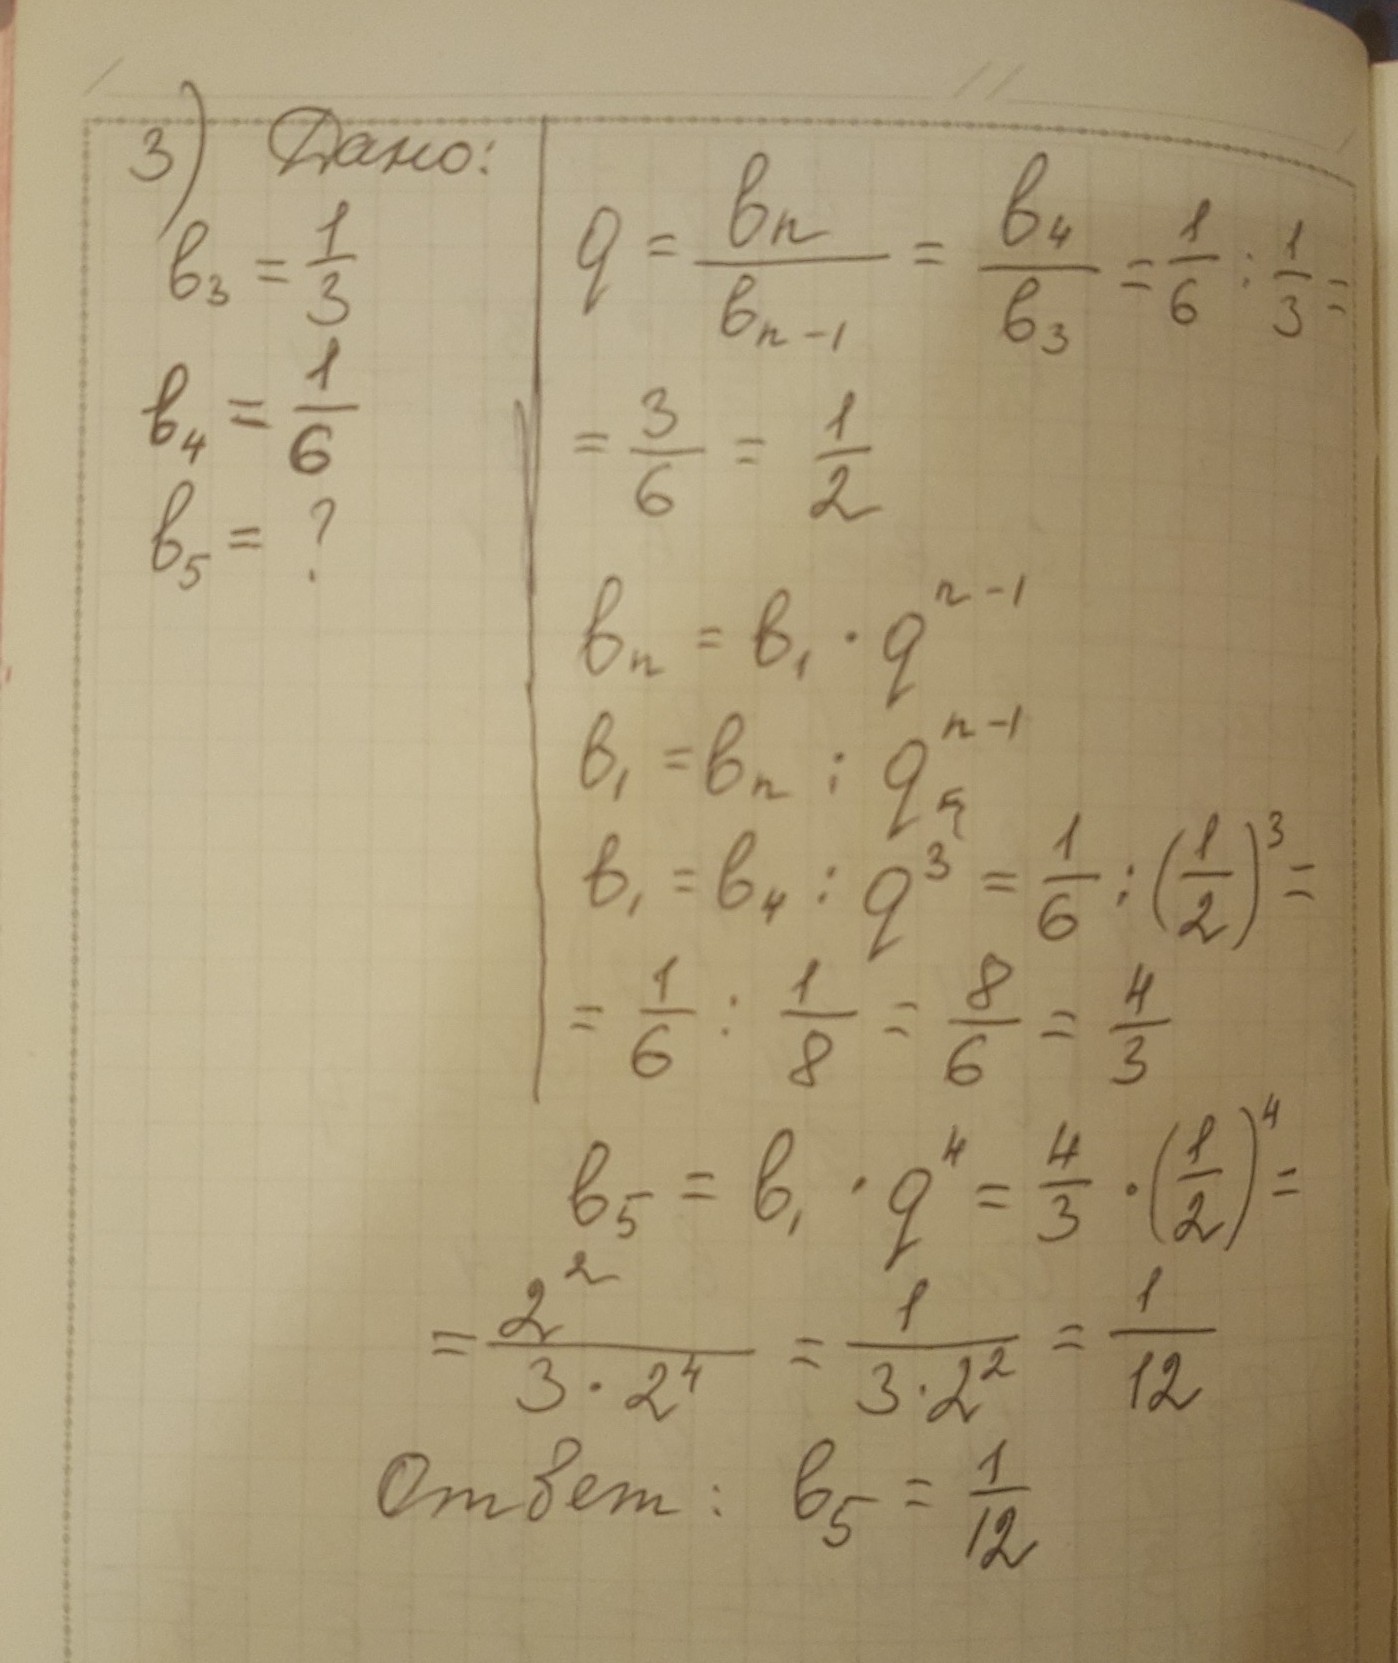 3) Дано:
в₃ = 1/3
в₄ = 1/6
в₅ = ?
q = вₙ/вₙ₋₁ = в₄/в₃ = 1/6 : 1/3 =
= 3/6 = 1/2
вₙ = в₁ · qⁿ⁻¹
в₁ = вₙ : qⁿ⁻¹
в₁ = в₄ : q³ = 1/6 : (1/2)³ =
= 1/6 : 1/8 = 8/6 = 4/3
в₅ = в₁ · q⁴ = 4/3 · (1/2)⁴ =
= 2²/(3 · 2⁴) = 1/(3 · 2²) = 1/12
Ответ: в₅ = 1/12